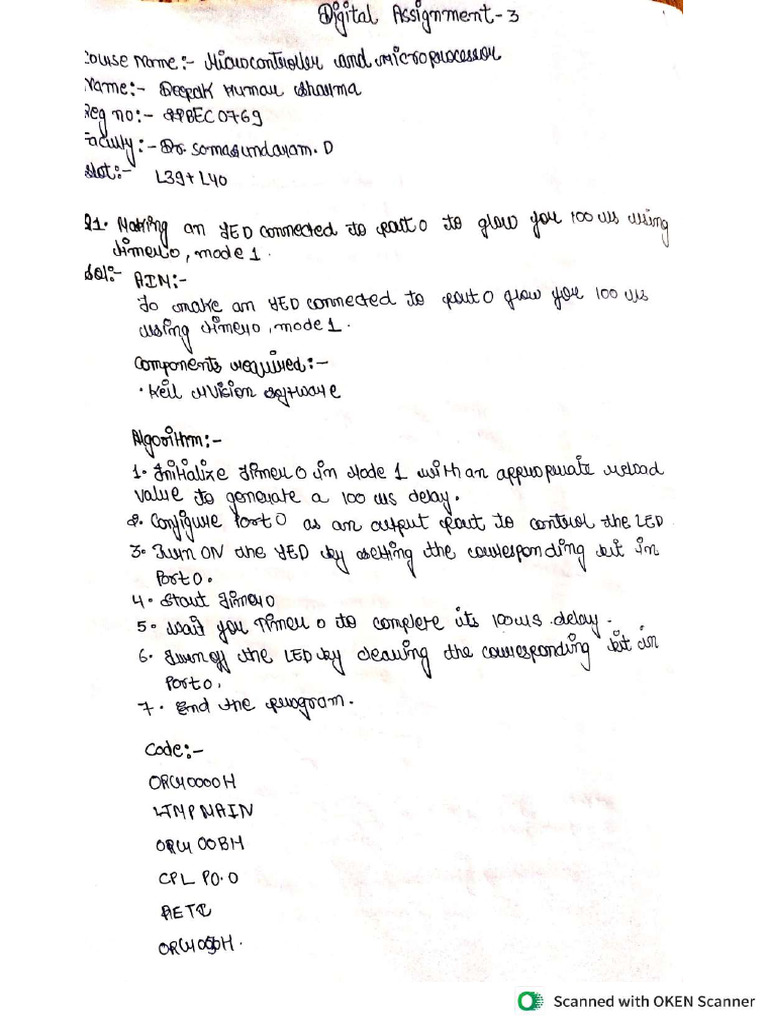 Digital Assignment-3
Course Name:- Microcontroller and microprocessor
Name:- Deepak Kumar Sharma
Reg no:- 22BEC0769
Faculty:- Dr. Somasundaram. D
Slot:- L39+L40
Q1. Making an LED connected to port 0 to glow for 100 us using
timer 0, mode 1.
Sol:- AIM:-
To make an LED connected to port 0 glow for 100 us
using timer 0, mode 1.
Components required:-
• Keil uVision software
Algorithm:-
1. Initialize timer 0 in Mode 1 with an appropriate reload
value to generate a 100 us delay.
2. Configure Port 0 as an output port to control the LED
3. Turn ON the LED by setting the corresponding bit in
Port 0.
4. Start Timer 0
5. Wait for Timer 0 to complete its 100us delay.
6. Turn off the LED by clearing the corresponding bit in
Port 0.
7. End the program.
Code:-
ORG 0000H
LJMP MAIN
ORG 00BH
CPL P0.0
RETI
Scanned with OKEN Scanner